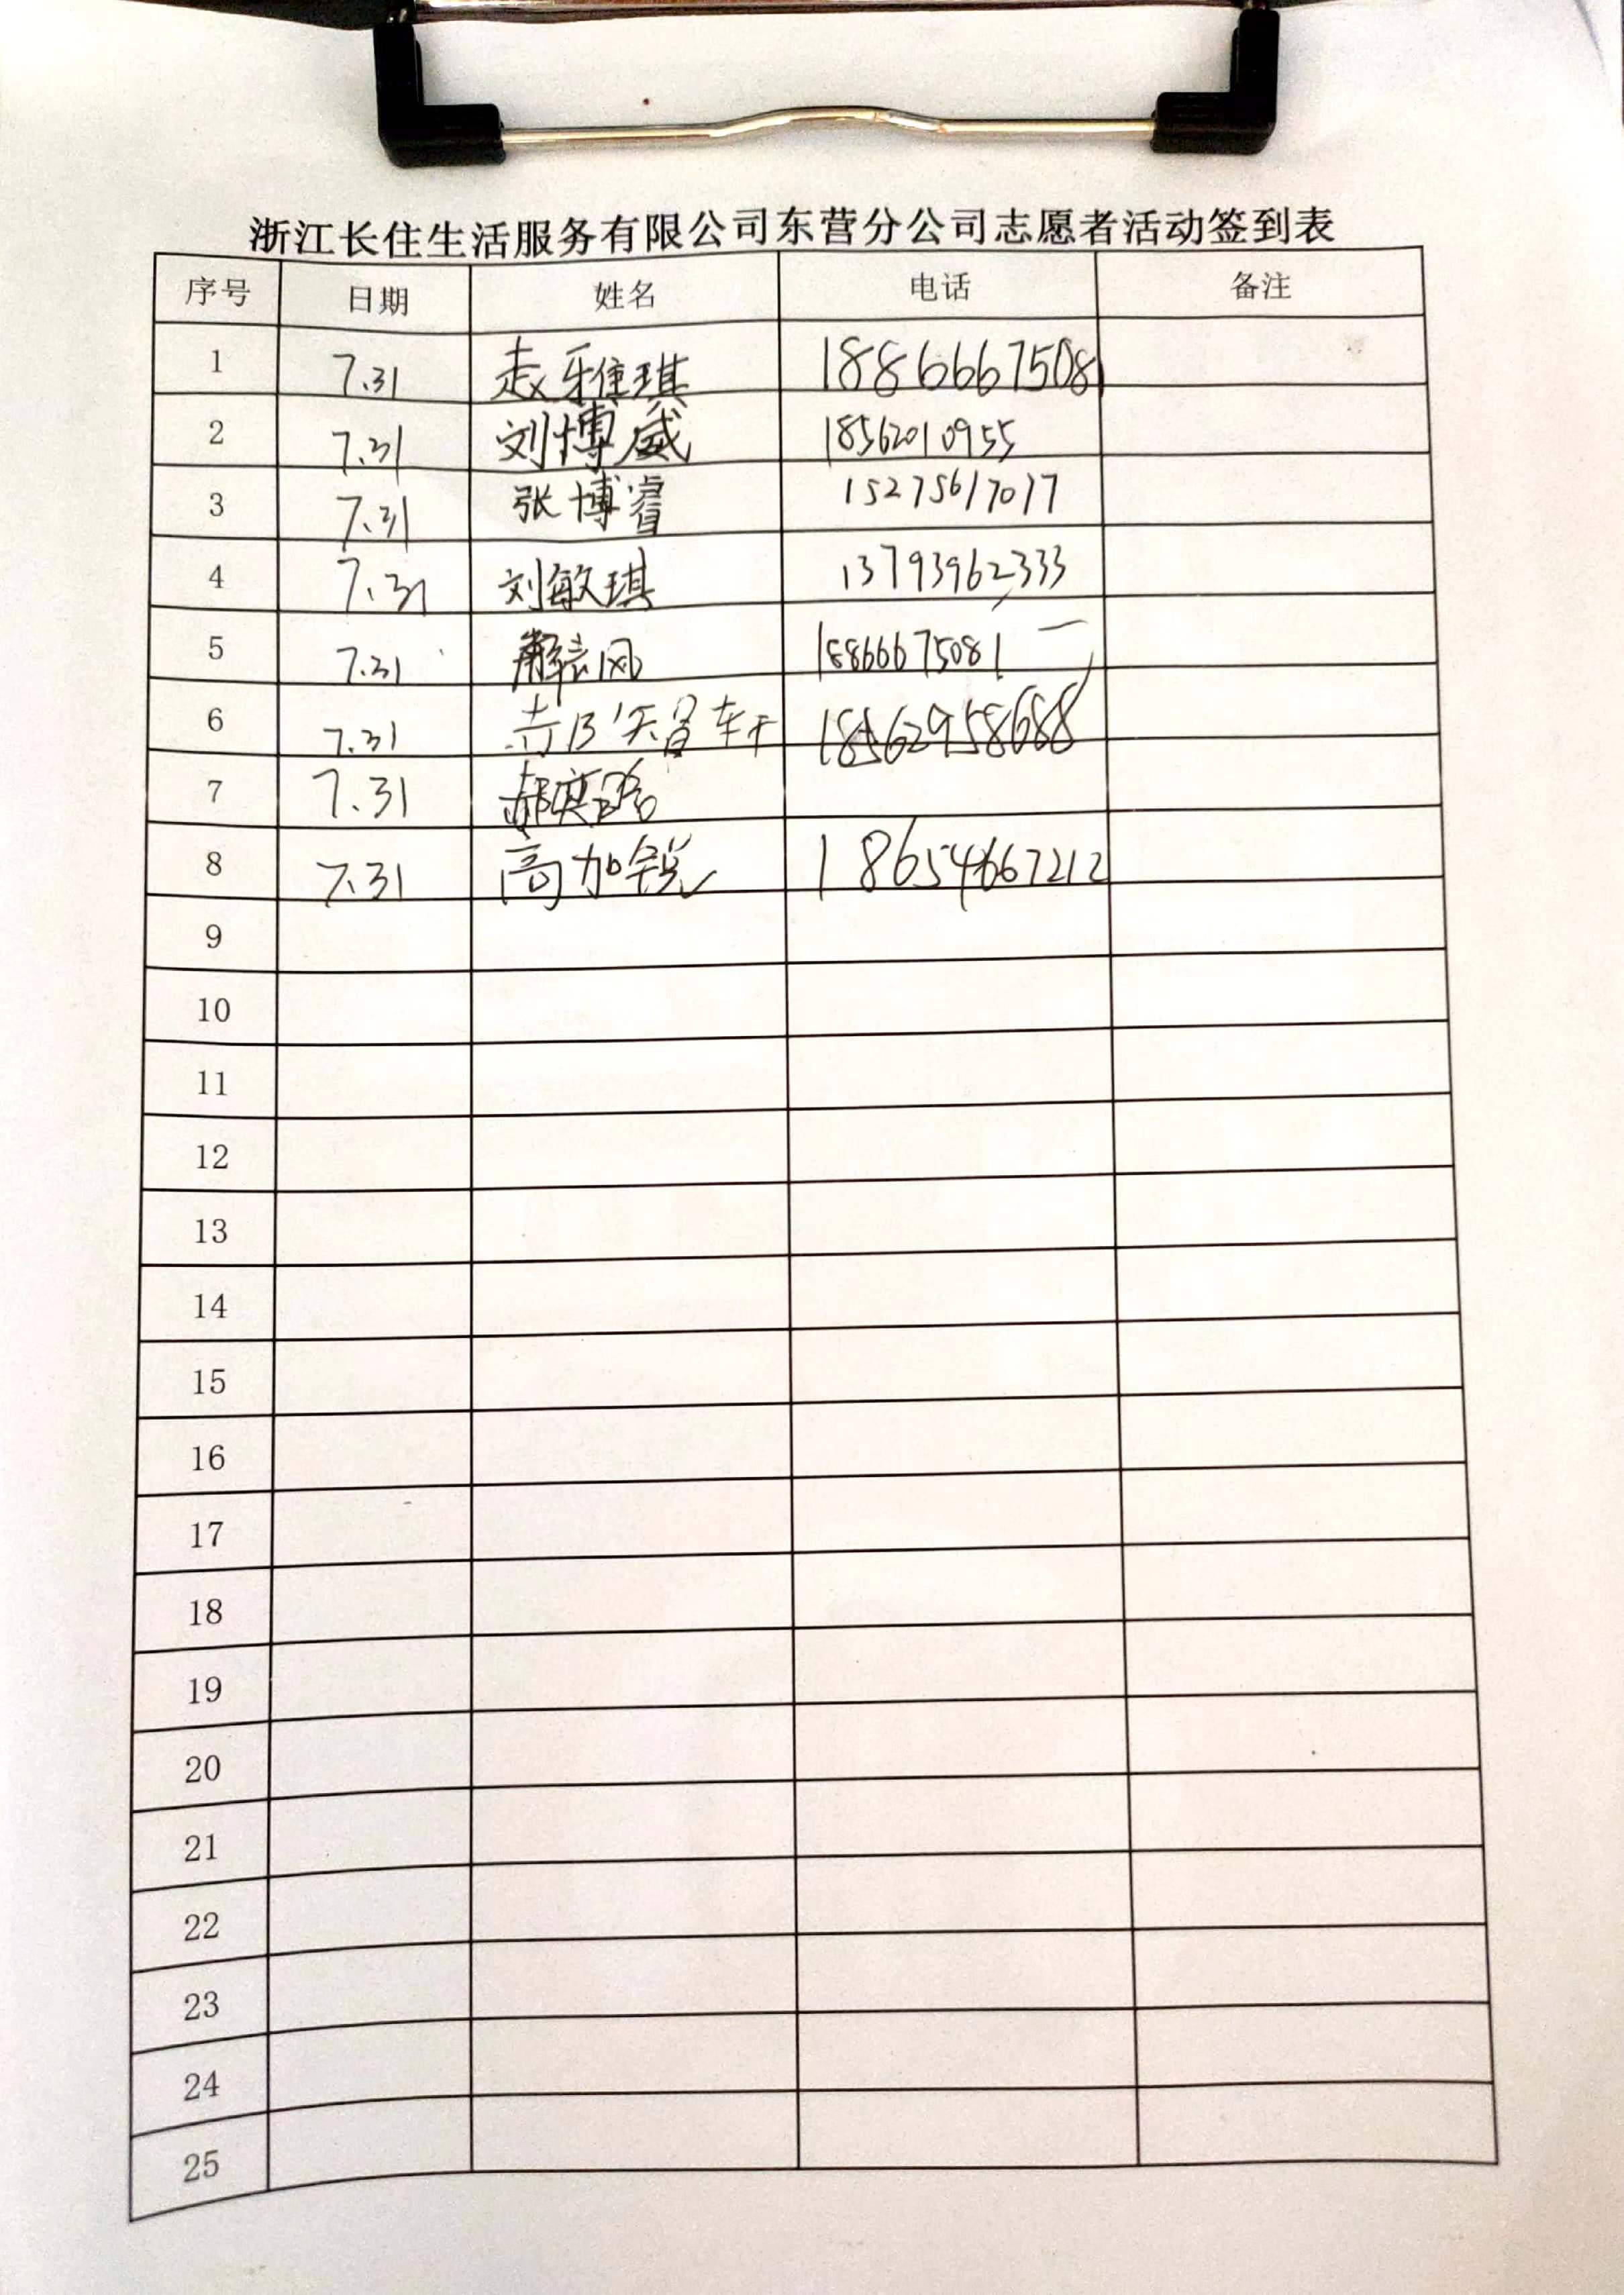 浙江长住生活服务有限公司东营分公司志愿者活动签到表
序号 日期 姓名 电话 备注
1 7.31 赵雅琪 18866667508
2 7.31 刘博威 18562010955
3 7.31 张博睿 15275617017
4 7.31 刘敏琪 13793962333
5 7.31 解 风 18866675081
6 7.31 郝 轩 18562958688
7 7.31 郝奕
8 7.31 高加锐 18654667212
9
10
11
12
13
14
15
16
17
18
19
20
21
22
23
24
25